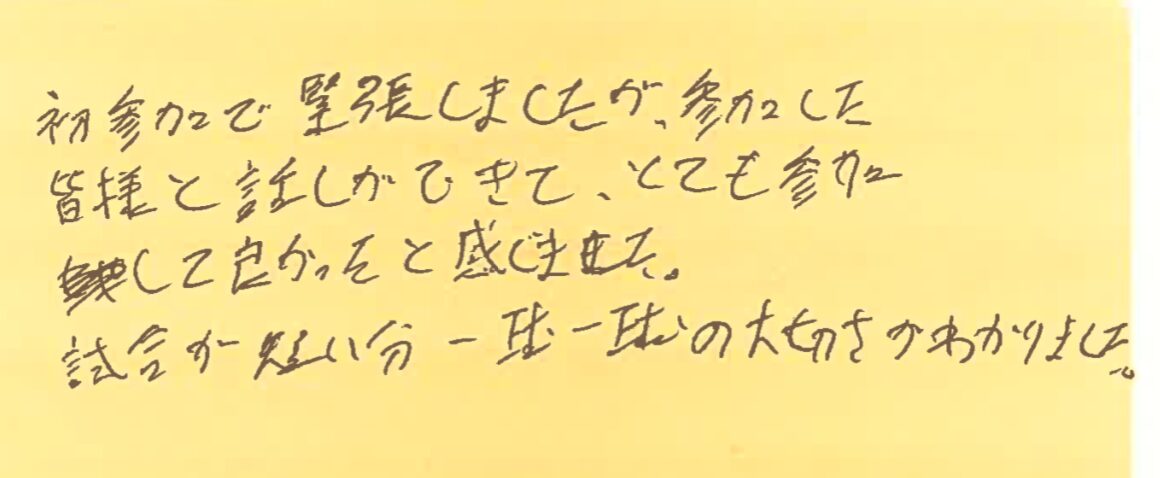 初参加で緊張しましたが、参加した
皆様と話しができて、とても参加
して良かったと感じました。
試合が短い分一球一球の大切さがわかりました。